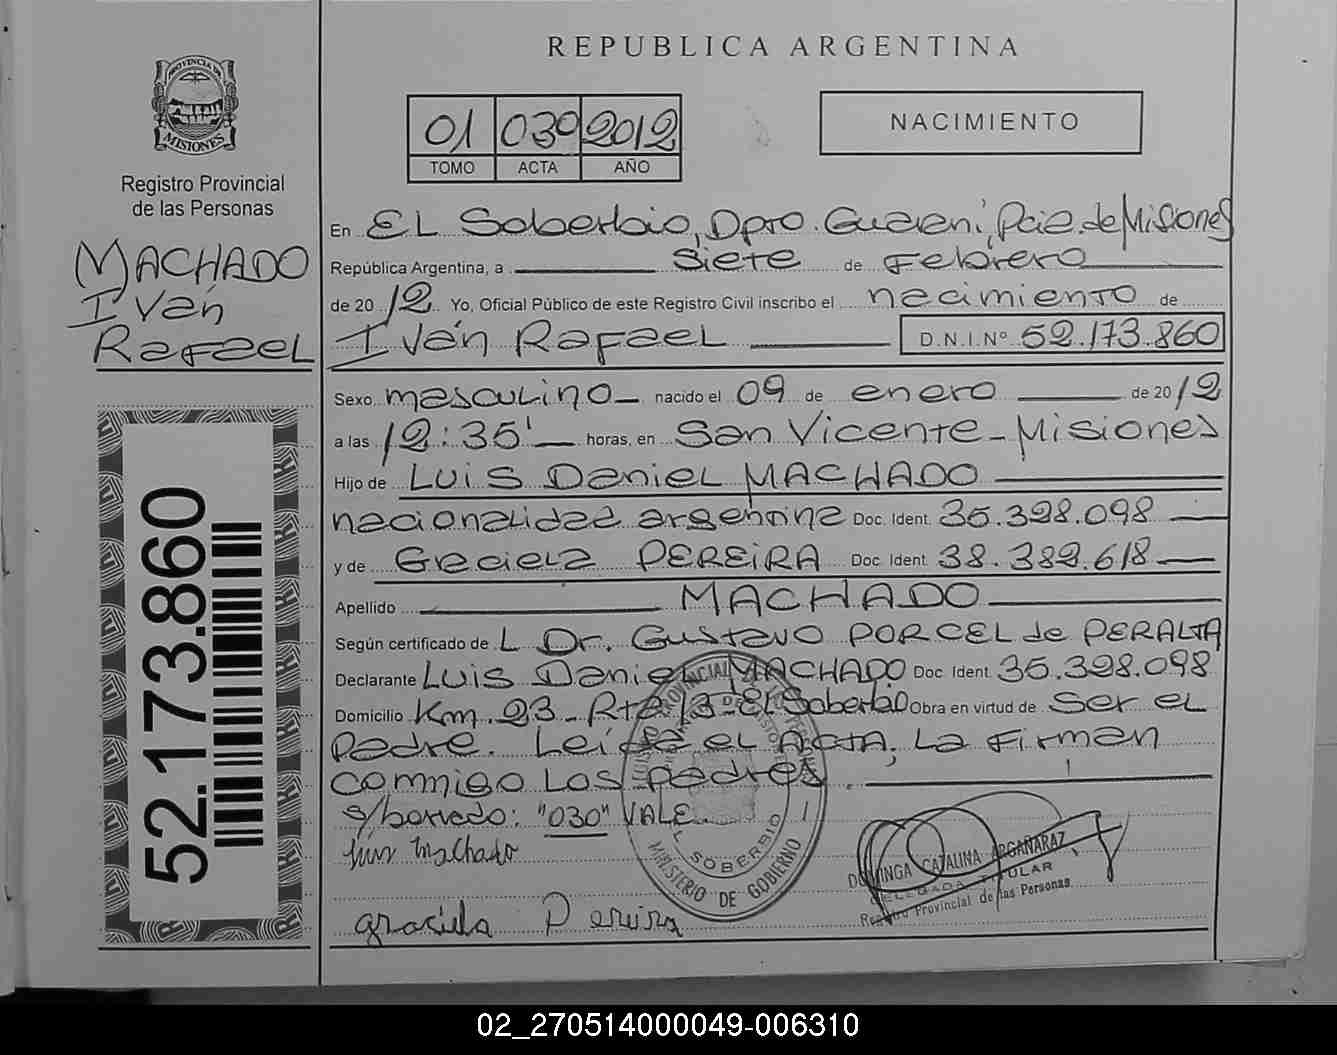 REPUBLICA ARGENTINA
PROVINCIA DE
MISIONES
Registro Provincial
de las Personas
01 030 2012
TOMO ACTA AÑO
NACIMIENTO
MACHADO
Iván
Rafael
En EL Soberbio, Dpto. Guaraní, Pcia de Misiones
República Argentina, a siete de Febrero
de 2012. Yo, Oficial Público de este Registro Civil inscribo el nacimiento de
Iván Rafael D.N.I.Nº 52.173.860
Sexo masculino nacido el 09 de enero de 2012
a las 12:35' horas, en San Vicente - Misiones
Hijo de Luis Daniel MACHADO
nacionalidad argentina Doc. Ident. 35.328.098
y de Graciela PEREIRA Doc. Ident. 38.382.618
Apellido MACHADO
Según certificado de L Dr. Gustavo PORCEL de PERALTA
Declarante Luis Daniel MACHADO Doc. Ident. 35.328.098
Domicilio Km. 23 - Rta 13 - El Soberbio Obra en virtud de ser el
padre. Leída el ACTA, La Firman
conmigo Los padres.
s/borrado: "030" VALE.
Luis Machado
graciela Pereira
52.173.860
SOBERBIO
MINISTERIO DE GOBIERNO
DOMINGA CATALINA ARGAÑARAZ
DELEGADA TITULAR
Registro Provincial de las Personas
02_270514000049-006310